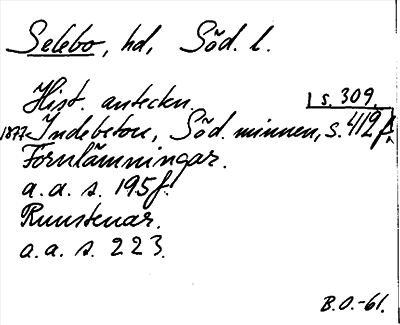 Selebo, hd, Söd. l.
Hist. anteckn. 1 s. 309.
1877 Indebetou, Söd. minnen, s. 419 f.
Fornlämningar.
a. a. s. 195 f.
Runstenar.
a. a. s. 223.
B.O.-61.